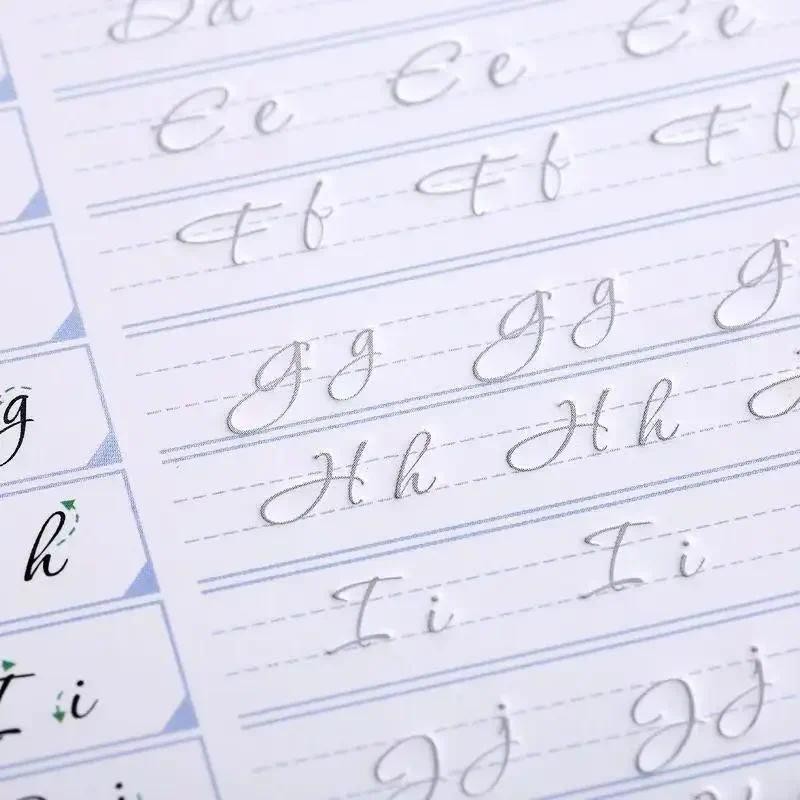 D d
E e E e E e
F f F f F f
g G g g G g g G
h H h H h
I i I i I i
J j J j